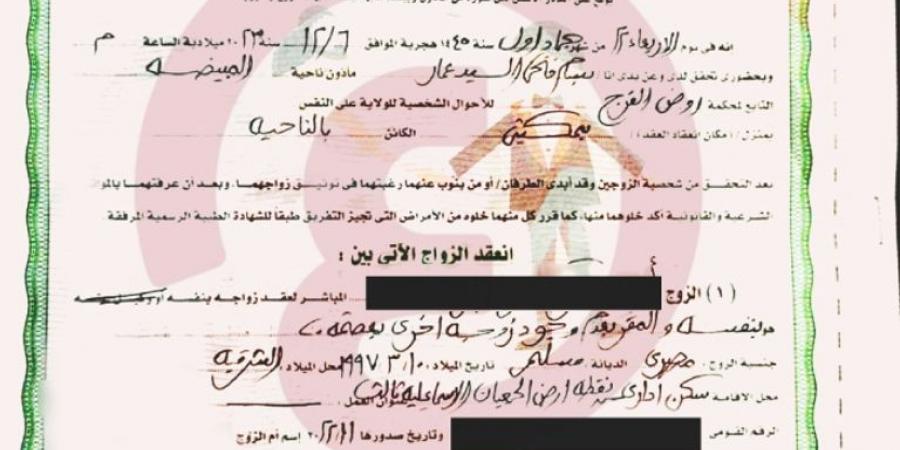 انه فى يوم الاربعاء ٢٢ من شهر جماد اول سنة ١٤٤٥ هجرية الموافق ١٢/٦ سنة ٢٠٢٣ ميلادية الساعة م
وبحضورى تحقق لدى وعن يدى انا / السيد عمار مأذون ناحية المبيضه
التابع لمحكمة روض الفرج للأحوال الشخصية للولاية على النفس
بمنزل / ( مكان انعقاد العقد ) بمكتبى الكائن بالناحيه
بعد التحقق من شخصية الزوجين وقد أبدى الطرفان / أو من ينوب عنهما رغبتهما فى توثيق زواجهما، وبعد أن عرفتهما بالموا
الشرعية والقانونية أكد خلوهما منها، كما قرر كل منهما خلوه من الأمراض التى تجيز التفريق طبقاً للشهادة الطبية الرسمية المرفقة.
انعقد الزواج الآتى بين :
( ١ ) الزوج أ المباشر لعقد زواجه بنفسه أو وكيل
لنفسه والمقر بعدم وجود زوجة اخرى بعصمته
جنسية الزوج: مصرى الديانة: مسلم تاريخ الميلاد ١٩٩٧/٣/١٠ محل الميلاد الشرقيه
محل الاقامة سكن ادارى نقطه ارض الجمعيات الاسماعيليه عنوان العمل
الرقم القومى وتاريخ صدورها إسم أم الزوج